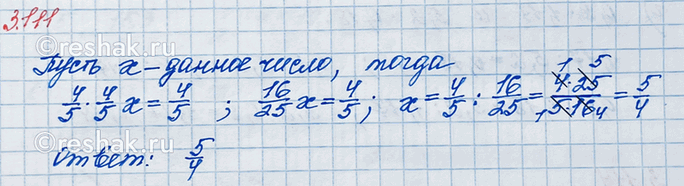 3.111
©reshak.ru
©reshak.ru
Пусть x - данное число, тогда
4/5 · 4/5 x = 4/5 ; 16/25 x = 4/5 ; x = 4/5 : 16/25 = 4·25/5·16 = 5/4
1 5
1 4
Ответ: 5/4